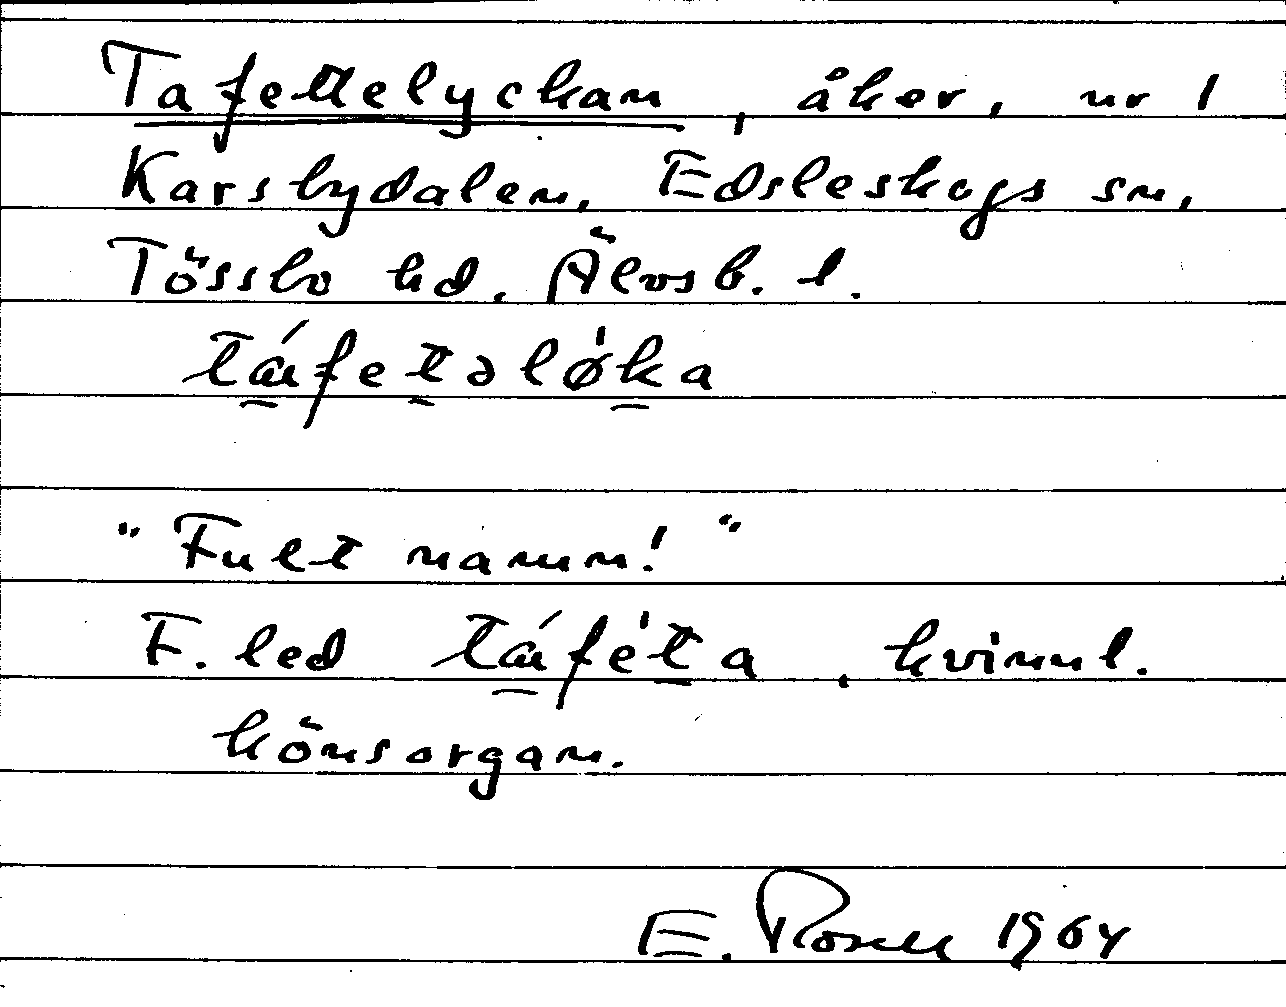 Tafettelyckan, åker, nr 1
Karsbydalen, Edsleskogs sn,
Tössbo hd, Älvsb. l.
tá̱fet̲əlø̍k̲a
"Fult namn!"
F. led tá̱fe̍t̲a, kvinnl.
könsorgan.
E. Rosell 1964